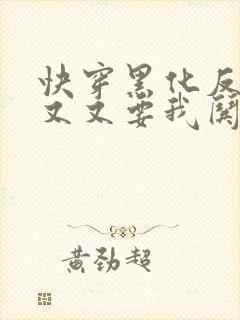 快穿黑化反
又又要我闗
黄劲超